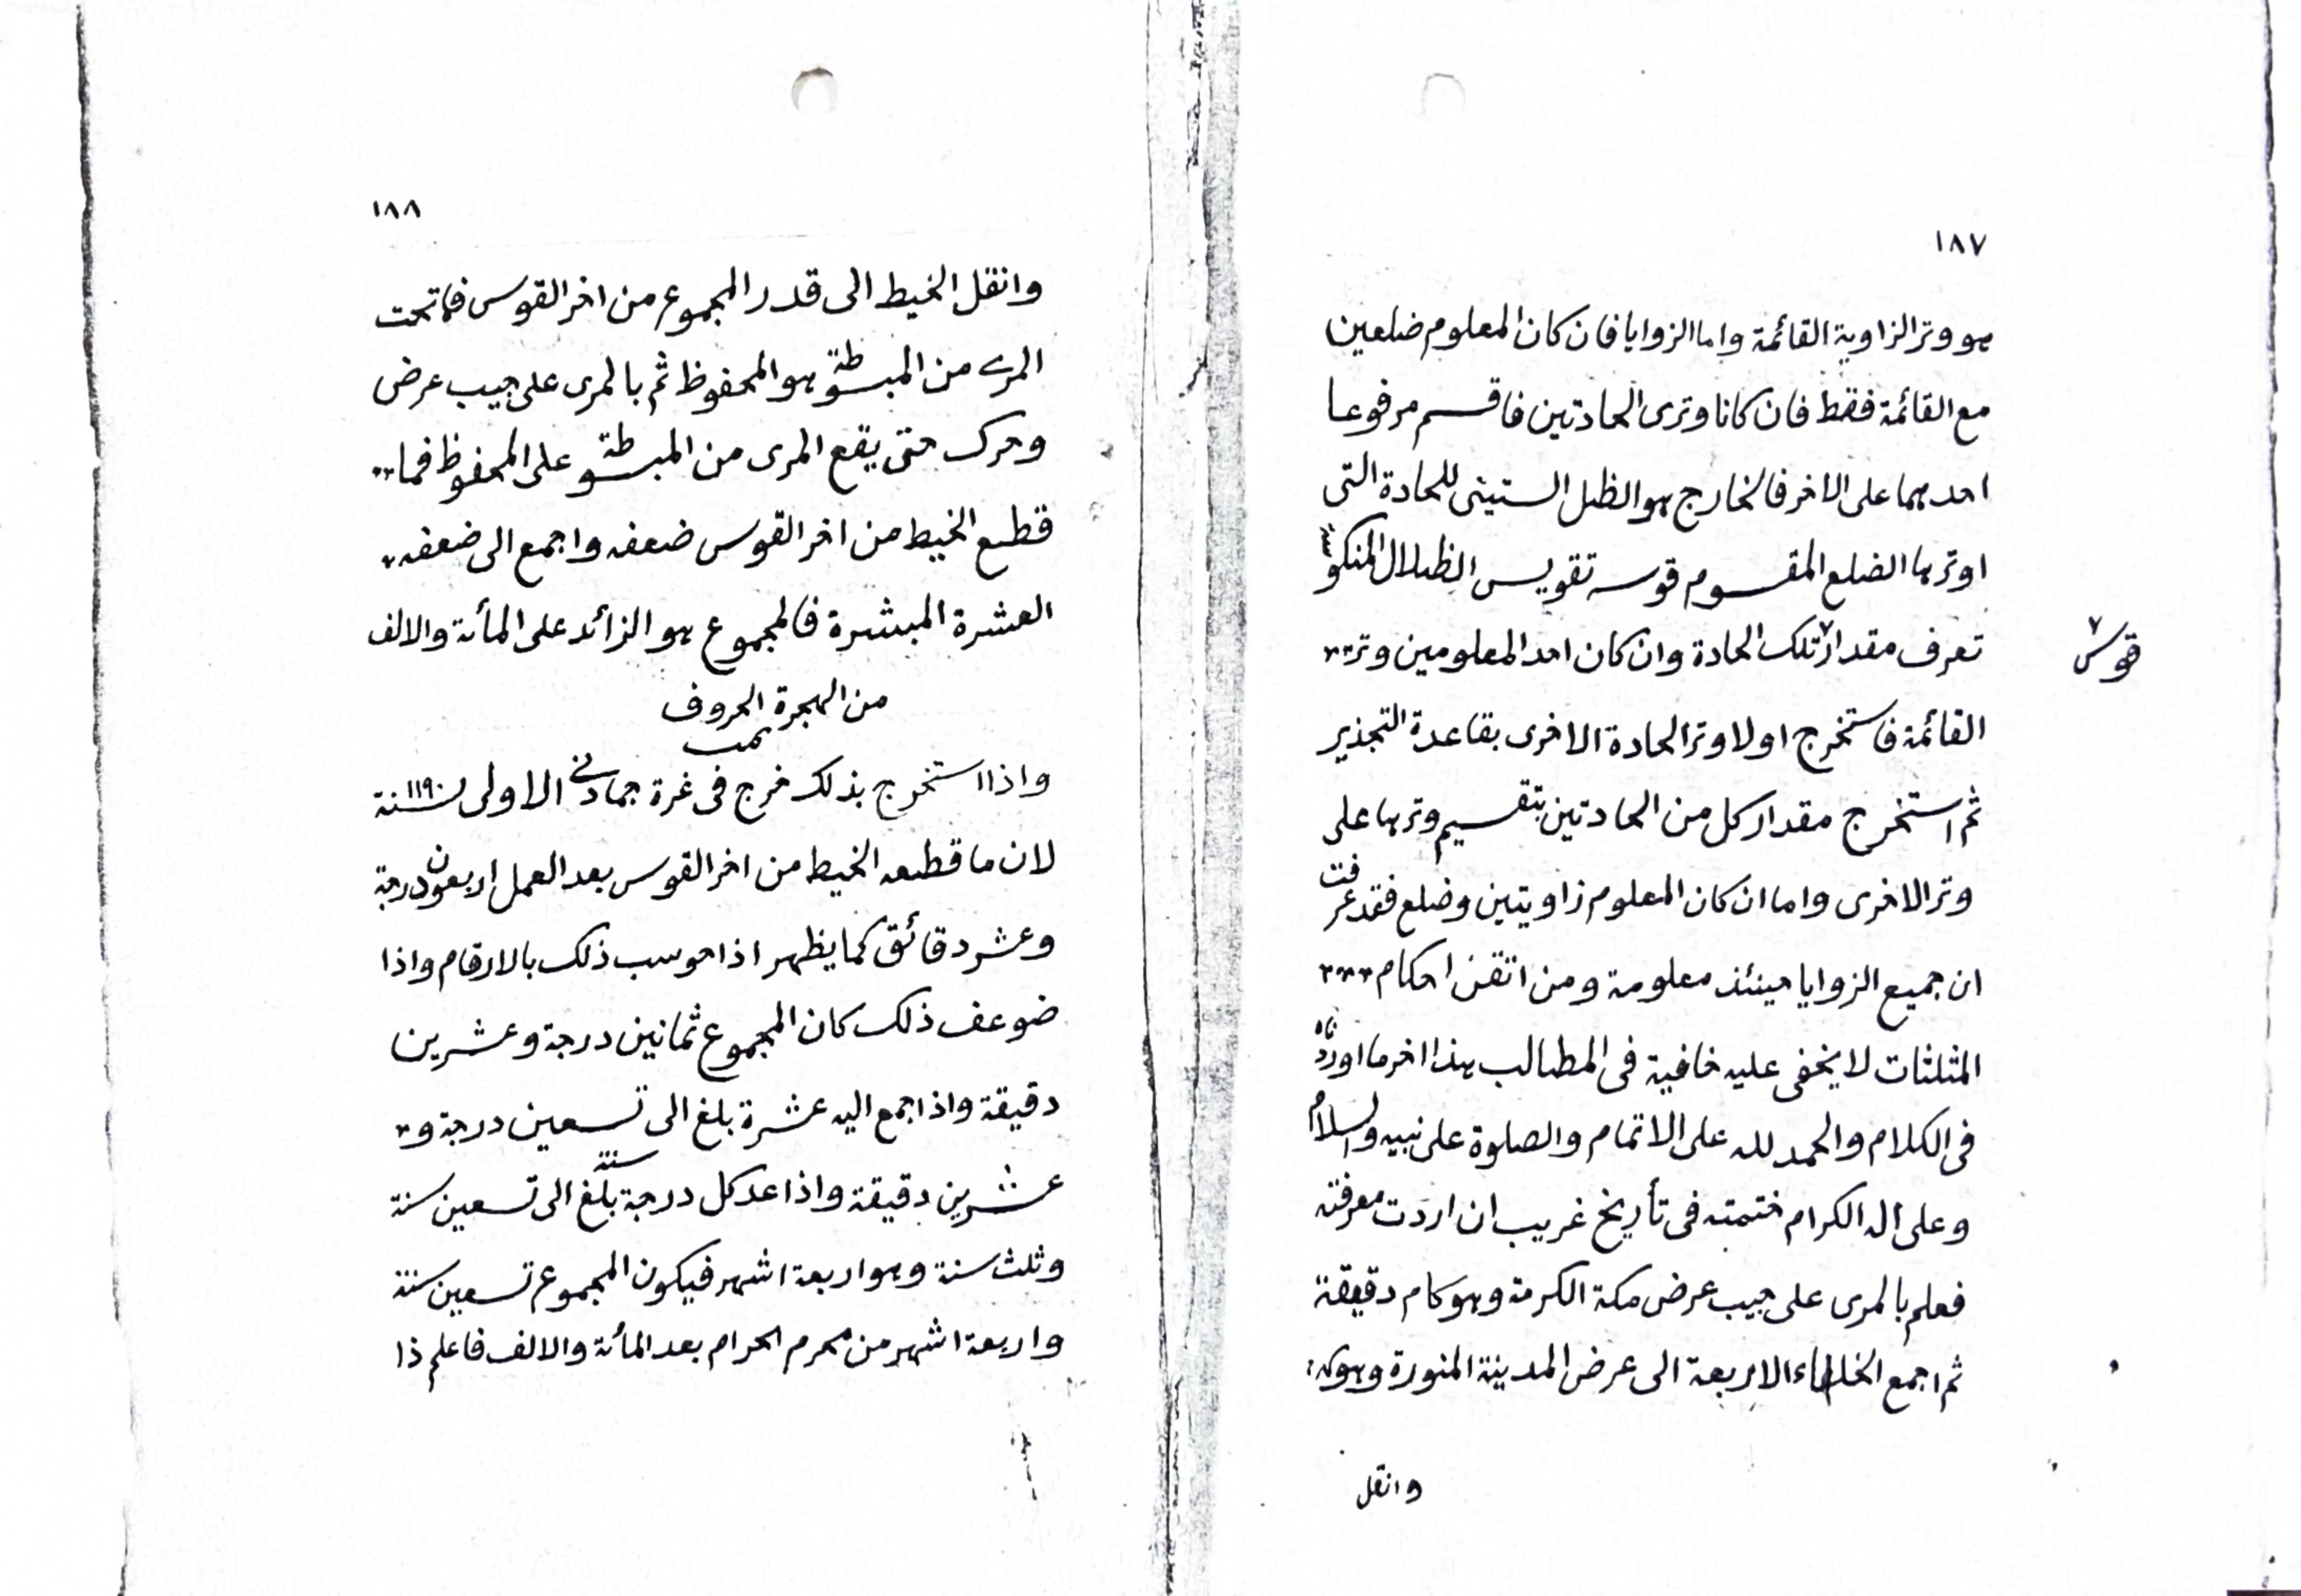 ١٨٧
هو وتر الزاوية القائمة واما الزوايا فان كان المعلوم ضلعين
مع القائمة فقط فان كانا وترى الحادتين فاقسم مرفوعا
احدهما على الاخر فالخارج هو الظل الستينى للحادة التى
اوترها الضلع المقسوم قوسه تقويس الظلال المنكوسة
تعرف مقدار تلك الحادة وان كان احد المعلومين وتر
قوس
القائمة فاستخرج اولا وتر الحادة الاخرى بقاعدة التجذير
ثم استخرج مقدار كل من الحادتين بتقسيم وترها على
وتر الاخرى واما ان كان المعلوم زاويتين وضلع فقد عرفت
ان جميع الزوايا حينئذ معلومة ومن اتقن احكام
المثلثات لا يخفى عليه خافية فى المطالب هذا اخر ما اوردناه
فى الكلام والحمد لله على الاتمام والصلوة على نبيه والسلام
وعلى اله الكرام ختمته فى تأريخ غريب ان اردت معرفته
فعلم بالمرى على جيب عرض مكة الكرمة وهو كام دقيقة
ثم اجمع الخلفاء الاربعة الى عرض المدينة المنورة وهو كه
وانقل
١٨٨
وانقل الخيط الى قدر المجموع من اخر القوس فما تحت
المرى من المبسوطة هو المحفوظ ثم بالمرى على جيب عرض
وحرك حتى يقع المرى من المبسوطة على المحفوظ فما
قطع الخيط من اخر القوس ضعفه واجمع الى ضعفه
العشرة المبشرة فالمجموع هو الزائد على المأئة والالف
من الهجرة الحروف
تمت
واذا استخرج بذلك خرج فى غرة جمادى الاولى سنة ١١٩٠
لان ما قطعه الخيط من اخر القوس بعد العمل اربعون درجة
وعشر دقائق كما يظهر اذا حوسب ذلك بالارقام واذا
ضوعف ذلك كان المجموع ثمانين درجة وعشرين
دقيقة واذا جمع اليه عشرة بلغ الى تسعين درجة و
عشرين دقيقة واذا عد كل درجة سنة بلغ الى تسعين سنة
وثلث سنة وهو اربعة اشهر فيكون المجموع تسعين سنة
واربعة اشهر من محرم الحرام بعد المأئة والالف فاعلم ذا